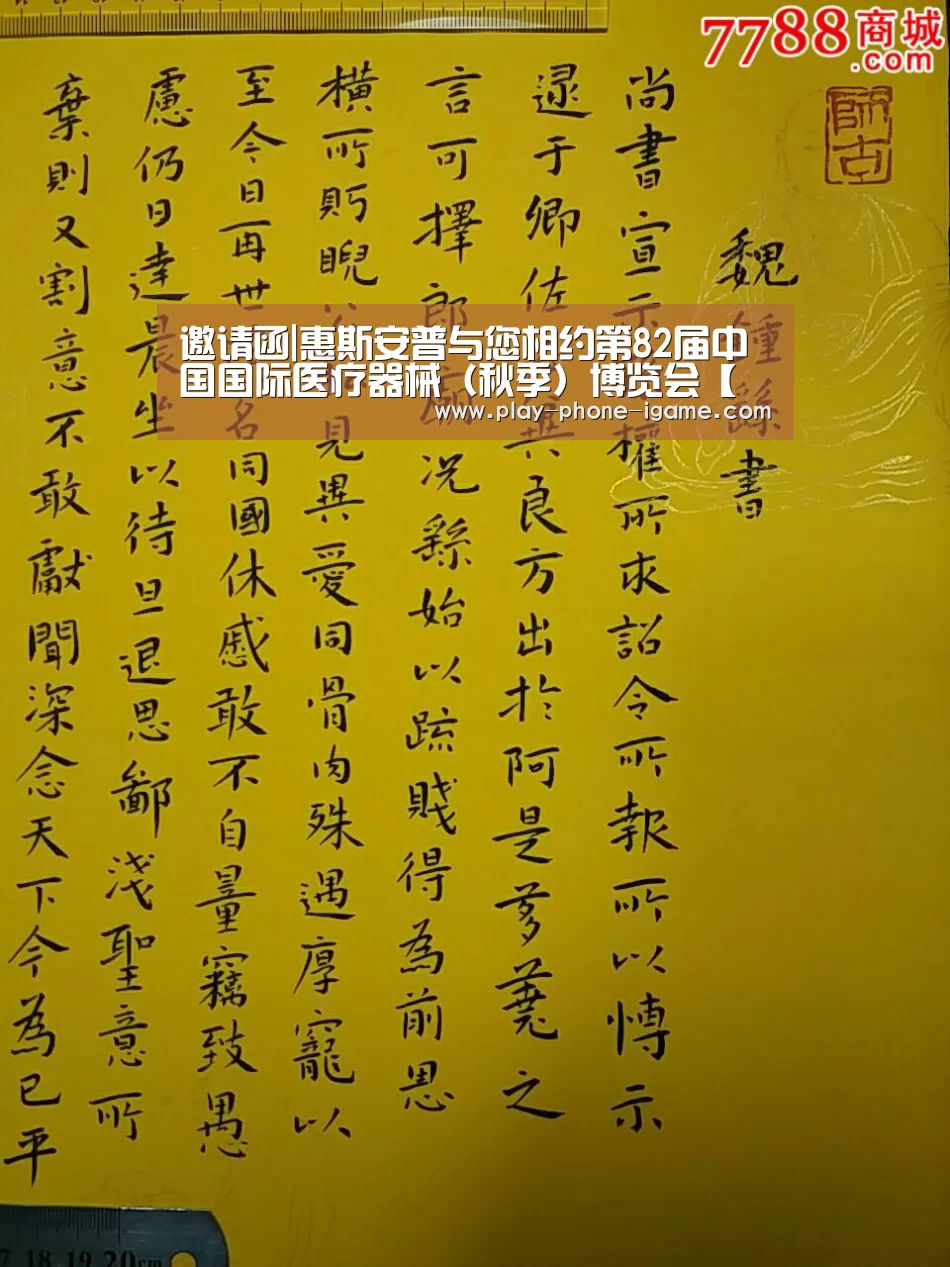 7788商城
.com
師古
魏鍾繇書
尚書宣示權所求詔令所報所以愽示
逮于卿佐冀良方出於阿是芻蕘之
言可擇郎廟況繇始以疏賤得為前恩
橫所眄睨公見異愛同骨肉殊遇厚寵以
至今日再世名同國休慼敢不自量竊致愚
慮仍日達晨坐以待旦退思鄙淺聖意所
棄則又割意不敢獻聞深念天下今為已平
邀请函|惠斯安普与您相约第82届中
国国际医疗器械（秋季）博览会【
www.play-phone-igame.com
18 19 20cm